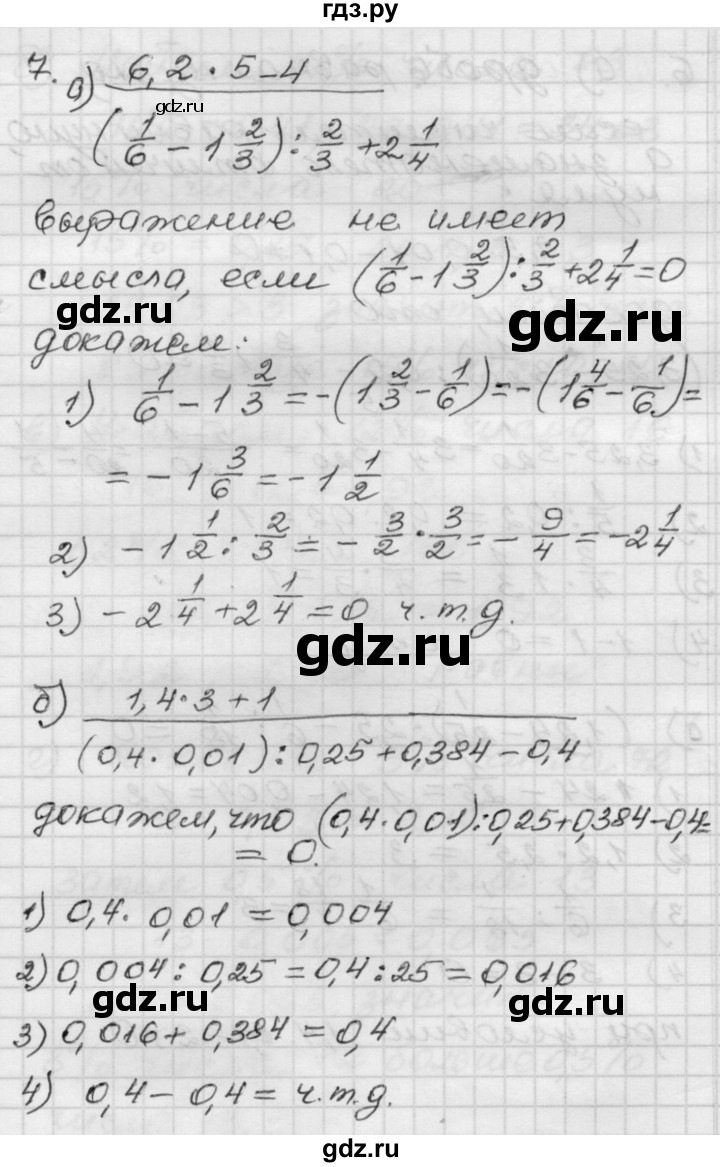 гдз.ру
7. а) 6,2 · 5 - 4
gdz.ru
(1/6 - 1 2/3) : 2/3 + 2 1/4
выражение не имеет
смысла, если (1/6 - 1 2/3) : 2/3 + 2 1/4 = 0
gdz.ru
gdz.ru
докажем:
1) 1/6 - 1 2/3 = -(1 2/3 - 1/6) = -(1 4/6 - 1/6) =
= -1 3/6 = -1 1/2
2) -1 1/2 : 2/3 = -3/2 · 3/2 = -9/4 = -2 1/4
3) -2 1/4 + 2 1/4 = 0 ч.т.д.
gdz.ru
б) 1,4 · 3 + 1
(0,4 · 0,01) : 0,25 + 0,384 - 0,4
докажем, что (0,4 · 0,01) : 0,25 + 0,384 - 0,4 =
= 0.
1) 0,4 · 0,01 = 0,004
2) 0,004 : 0,25 = 0,4 : 25 = 0,016
gdz.ru
gdz.ru
3) 0,016 + 0,384 = 0,4
4) 0,4 - 0,4 = ч.т.д.
gdz.ru